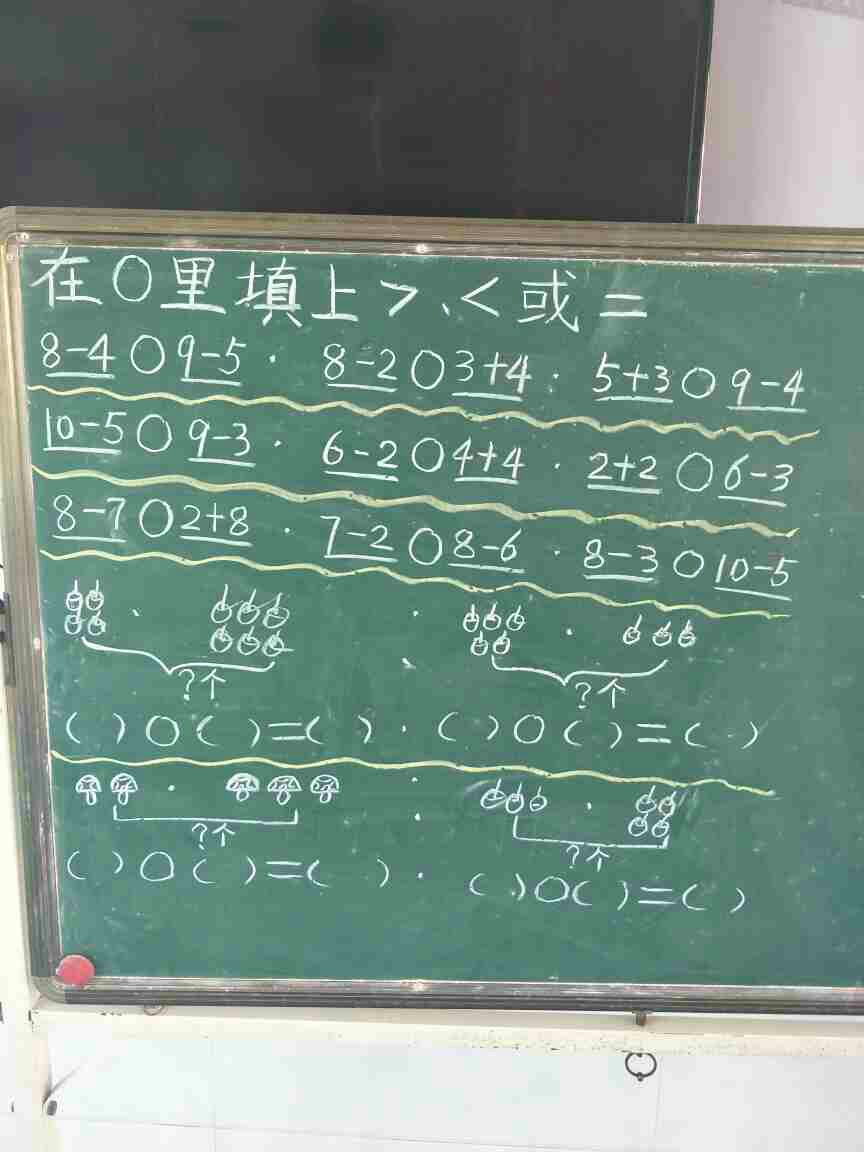 在○里填上>、<或=
8-4○9-5 · 8-2○3+4 · 5+3○9-4
10-5○9-3 · 6-2○4+4 · 2+2○6-3
8-7○2+8 · 7-2○8-6 · 8-3○10-5
?个 ?个
( )○( )=( ) · ( )○( )=( )
?个 ?个
( )○( )=( ) · ( )○( )=( )